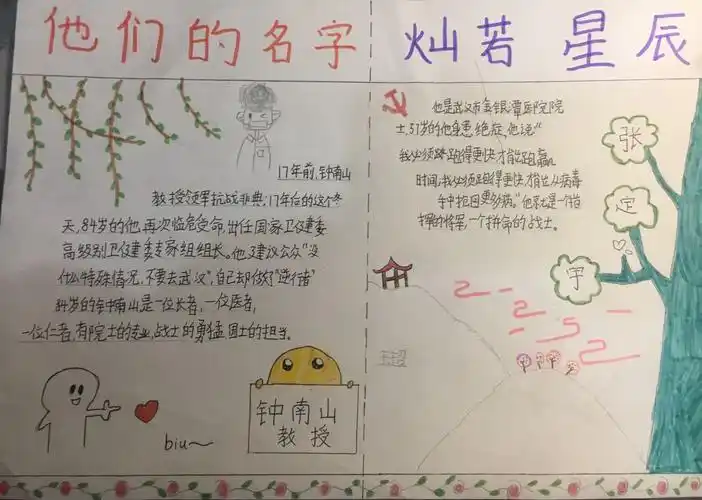 他们的名字 灿若星辰
17年前,钟南山
教授领军抗战非典,17年后的这个冬
天,84岁的他,再次临危受命,出任国家卫健委
高级别卫健委专家组组长。他建议公众"没
什么特殊情况,不要去武汉",自己却做了"逆行者"
84岁的钟南山是一位长者,一位医者,
一位仁者,有院士的专业,战士的勇猛,国士的担当。
biu~
钟南山
教授
他是武汉市金银潭医院院
士,57岁的他身患绝症,他说"
我必须跑得更快才能跑赢
时间,我必须跑得更快才能从病毒
手中抢回更多病。"他就是一个指
挥的将军,一个拼命的战士。
张
定
宇